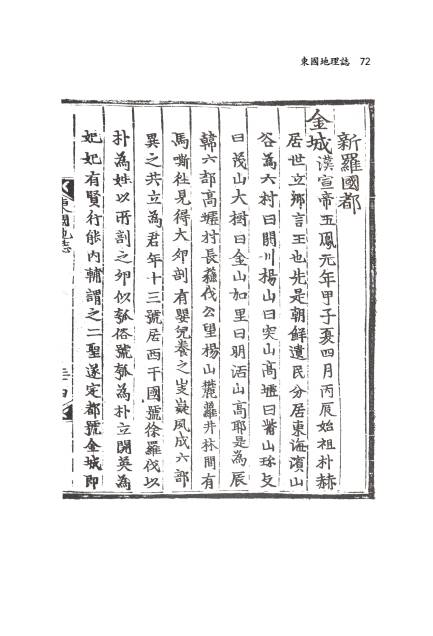 東國地理誌 72
新羅國都
金城 漢宣帝五鳳元年甲子夏四月丙辰始祖朴赫
居世立鄕言王也先是朝鮮遺民分居東海濱山
谷爲六村曰閼川楊山曰突山高墟曰觜山珍支
曰茂山大樹曰金山加里曰明活山高耶是爲辰
韓六部高墟村長蘇伐公望楊山麓蘿井林間有
馬嘶往見得大卵剖有嬰兒養之岐嶷夙成六部
異之共立爲君年十三號居西干國號徐羅伐以
朴爲姓以所剖之卵似瓠俗號瓠爲朴立閼英爲
妃妃有賢行能內輔謂之二聖遂定都號金城卽
東國地誌